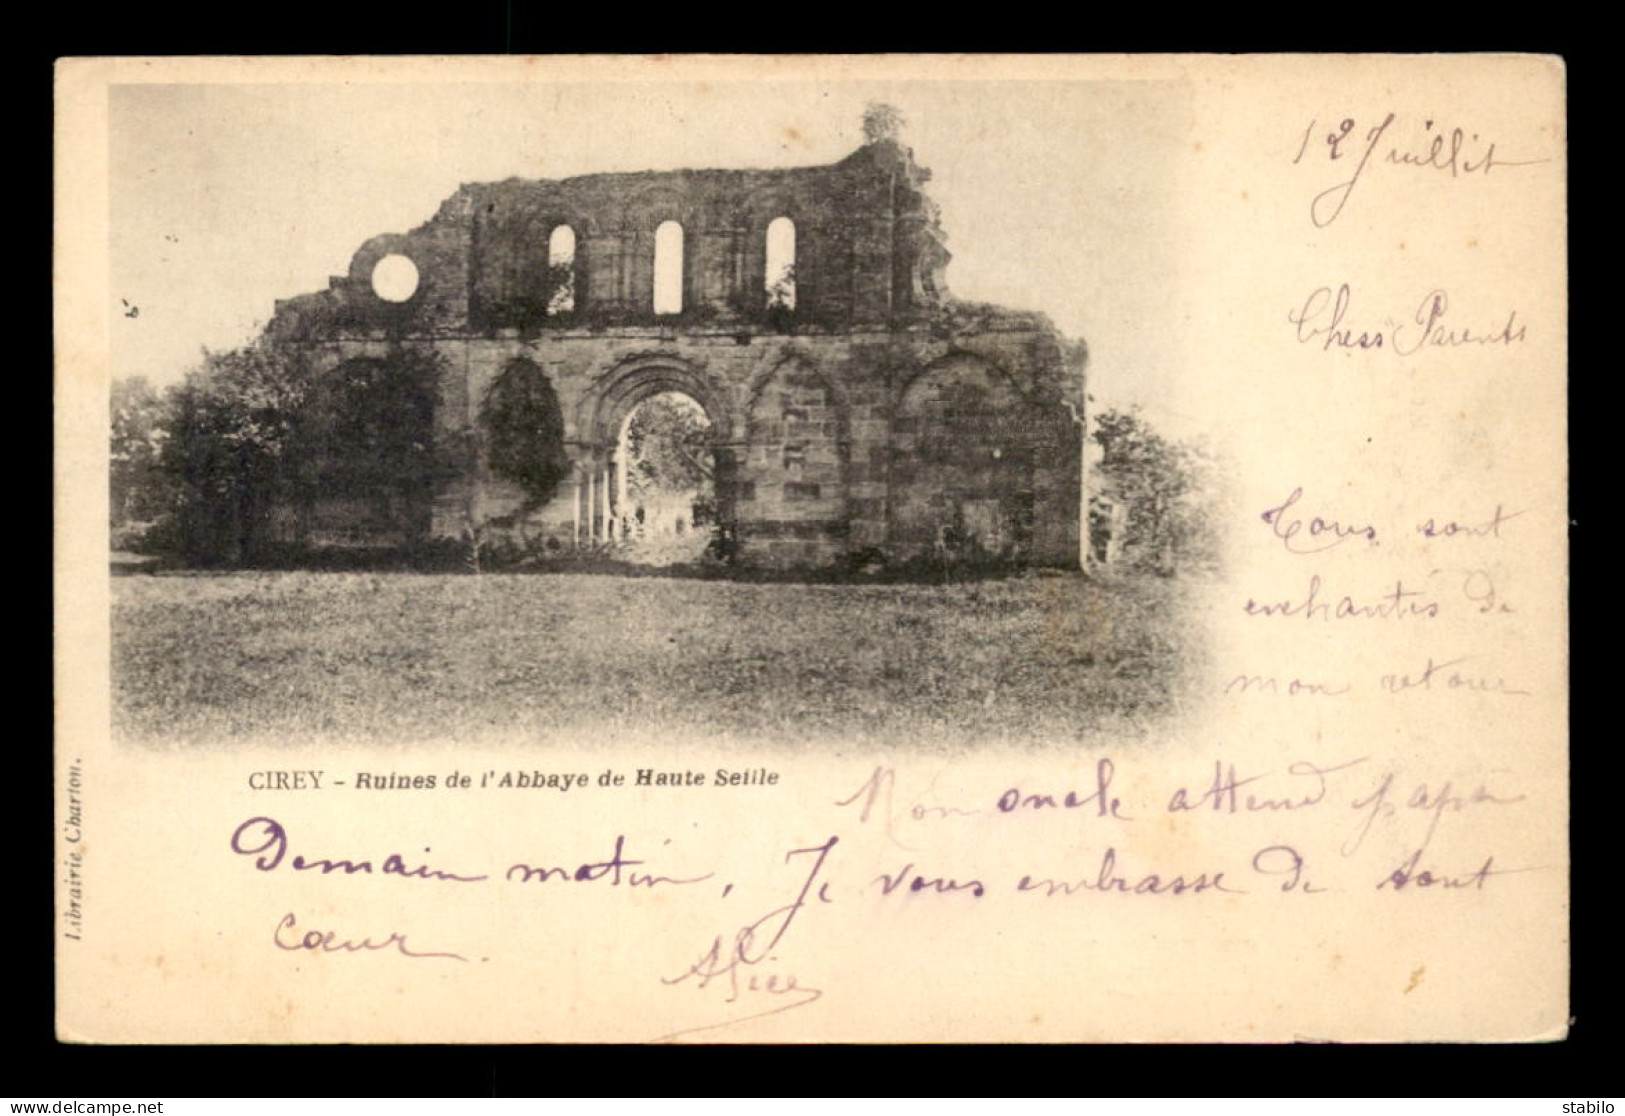 12 Juillit
Chess Parents
Tous sont
enchantés de
mon retour
CIREY - Ruines de l'Abbaye de Haute Seille
Mon oncle attend papa
Demain matin, Je vous embrasse de tout
cœur.
Alice
Librairie Charton.
delcampe.net
stabilo